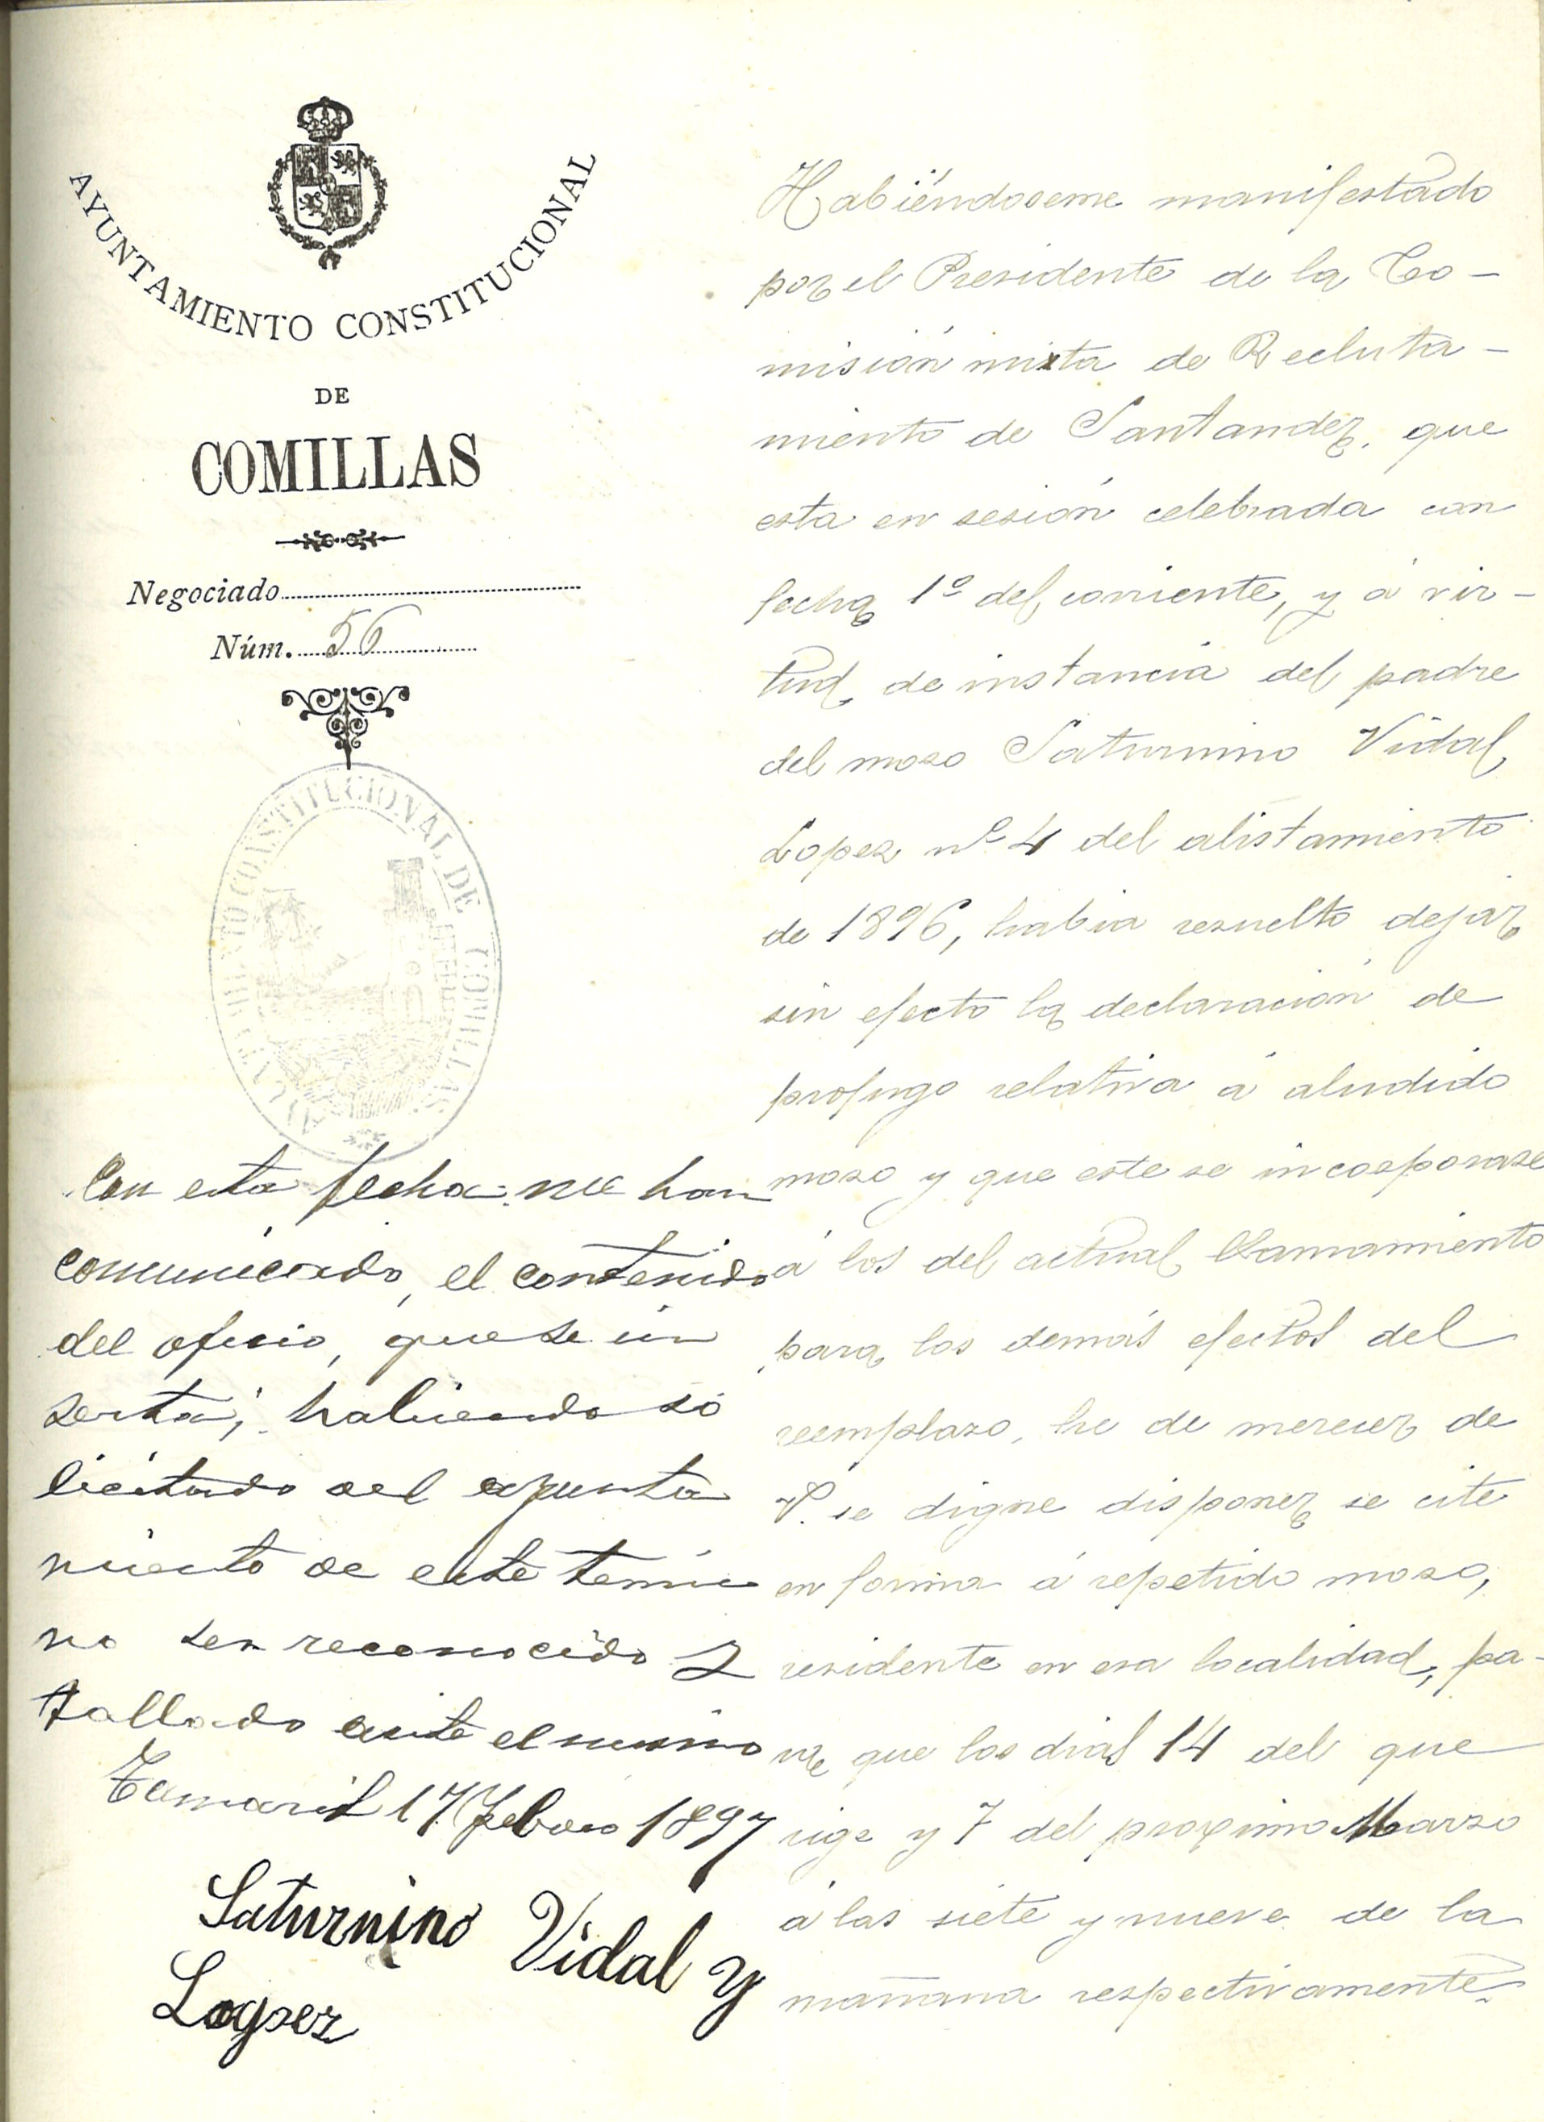 AYUNTAMIENTO CONSTITUCIONAL
DE
COMILLAS
Negociado
Núm. 56
AYUNTAMIENTO CONSTITUCIONAL DE COMILLAS
Con esta fecha me han
comunicado, el contenido
del oficio, que se in
serta; habiendo so
licitado del ayunta
miento de este termi
no ser reconocido y
tallado ante el mismo
Tamarit 17 Febrero 1897
Saturnino Vidal y
Logpez
Habiéndoseme manifestado
por el Presidente de la Co-
misión mixta de Recluta-
miento de Santander, que
esta en sesión celebrada con
fecha 1º del corriente, y á vir-
tud de instancia del padre
del moso Saturnino Vidal
Lopez nº 4 del alistamiento
de 1896, habia resuelto dejar
sin efecto la declaración de
profugo relativa á aludido
moso y que este se incorporase
á los del actual llamamiento
para los demás efectos del
reemplaso, he de merecer de
V. se digne disponer se cite
en forma á repetido moso,
residente en esa localidad, pa-
ra que los dias 14 del que
rige y 7 del proximo Marzo
á las siete y nueve de la
mañana respectivamente.